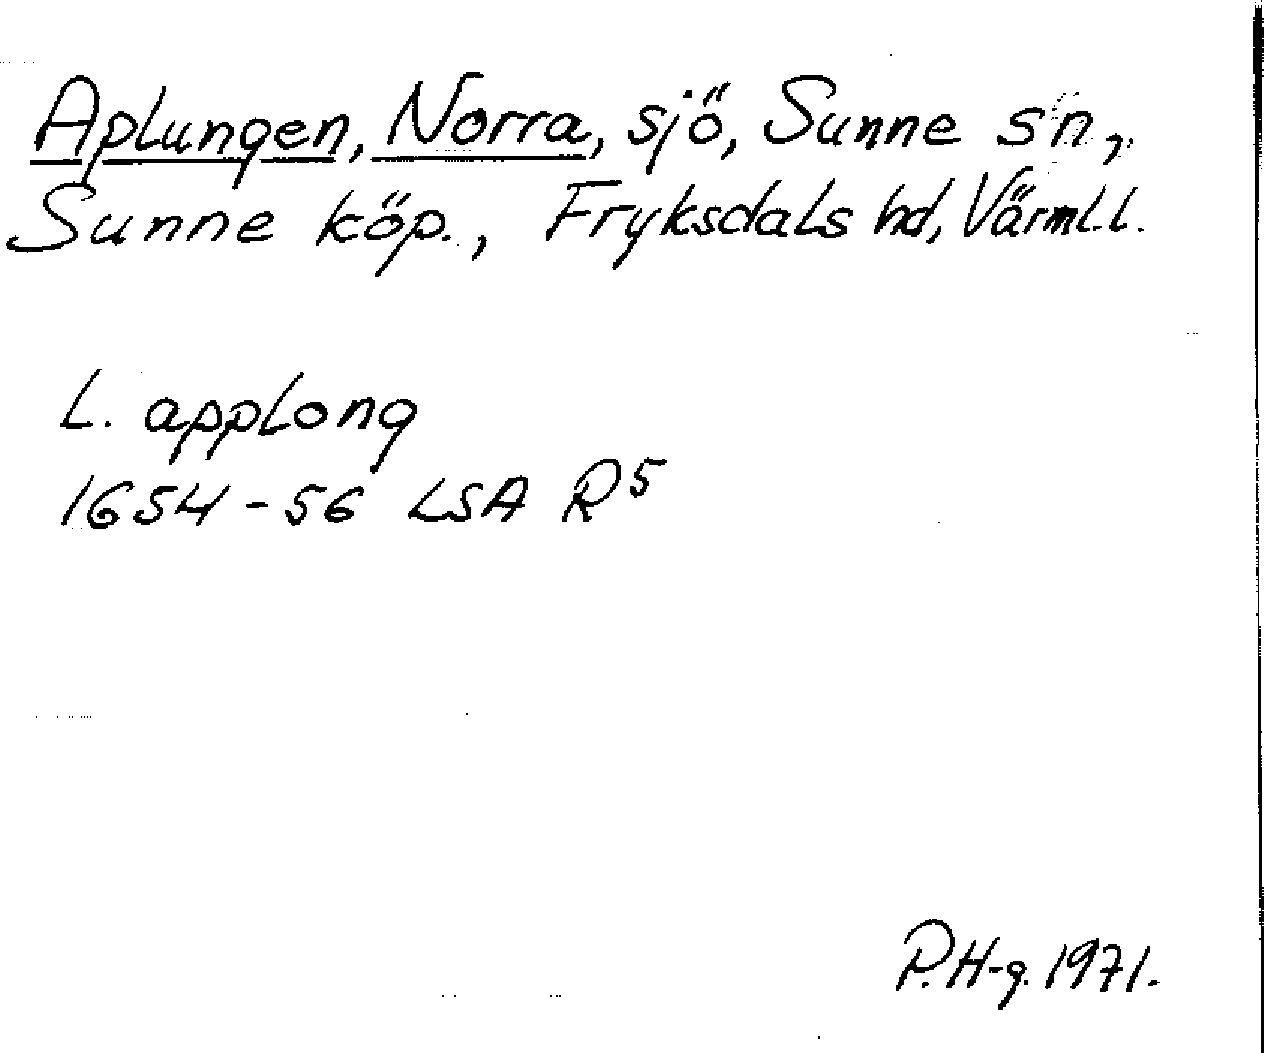 Aplungen, Norra, sjö, Sunne sn,
Sunne köp., Fryksdals hd, Värml.l.
L. applong
1654-56 LSA R5
P.H-g. 1971.